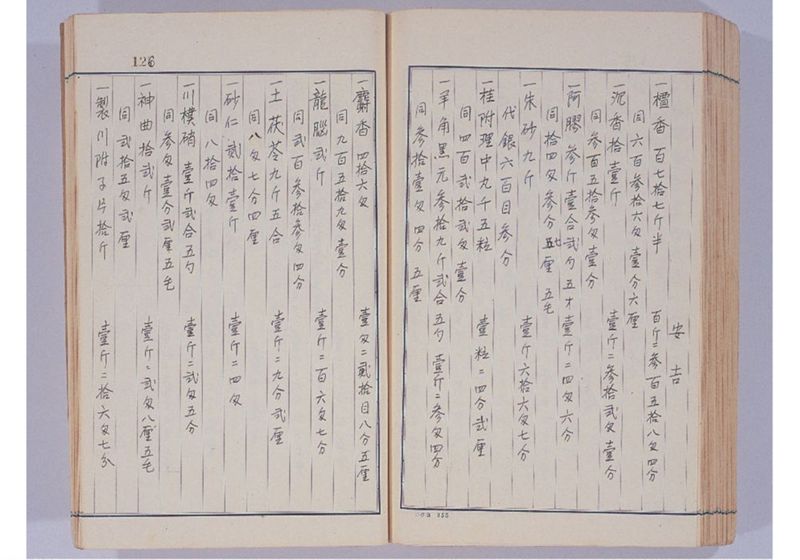 安吉
一檀香 百七拾七斤半 百斤ニ参百五拾八匁四分
同六百参拾六匁壹分六厘
一沉香拾壹斤 壹斤ニ参拾弐匁壹分
同参百五拾参匁壹分
一阿膠参斤壹合弐勺五才 壹斤ニ四匁六分
同拾四匁参分五厘五毛
一朱砂九斤 壹斤六拾六匁七分
代銀六百目参分
一桂附理中九千五粒 壹粒ニ四分弐厘
同四百弐拾弐匁壹分
一羊角黒元参拾九斤弐合五勺 壹斤ニ参匁四分
同参拾壹匁四分五厘
126
一麝香 四拾六匁 壹匁ニ貳拾目八分五厘
同九百五拾九匁壹分
一龍腦弐斤 壹斤ニ百六匁七分
同弐百参拾参匁四分
一土茯苓九斤五合 壹斤ニ九分弐厘
同八匁七分四厘
一砂仁貳拾壹斤 壹斤ニ四匁
同八拾四匁
一川樸硝 壹斤弐合五勺 壹斤ニ弐匁五分
同参匁壹分弐厘五毛
一神曲拾弐斤 壹斤ニ弐匁八厘五毛
同弐拾五匁弐厘
一製川附子片拾斤 壹斤ニ拾六匁七分